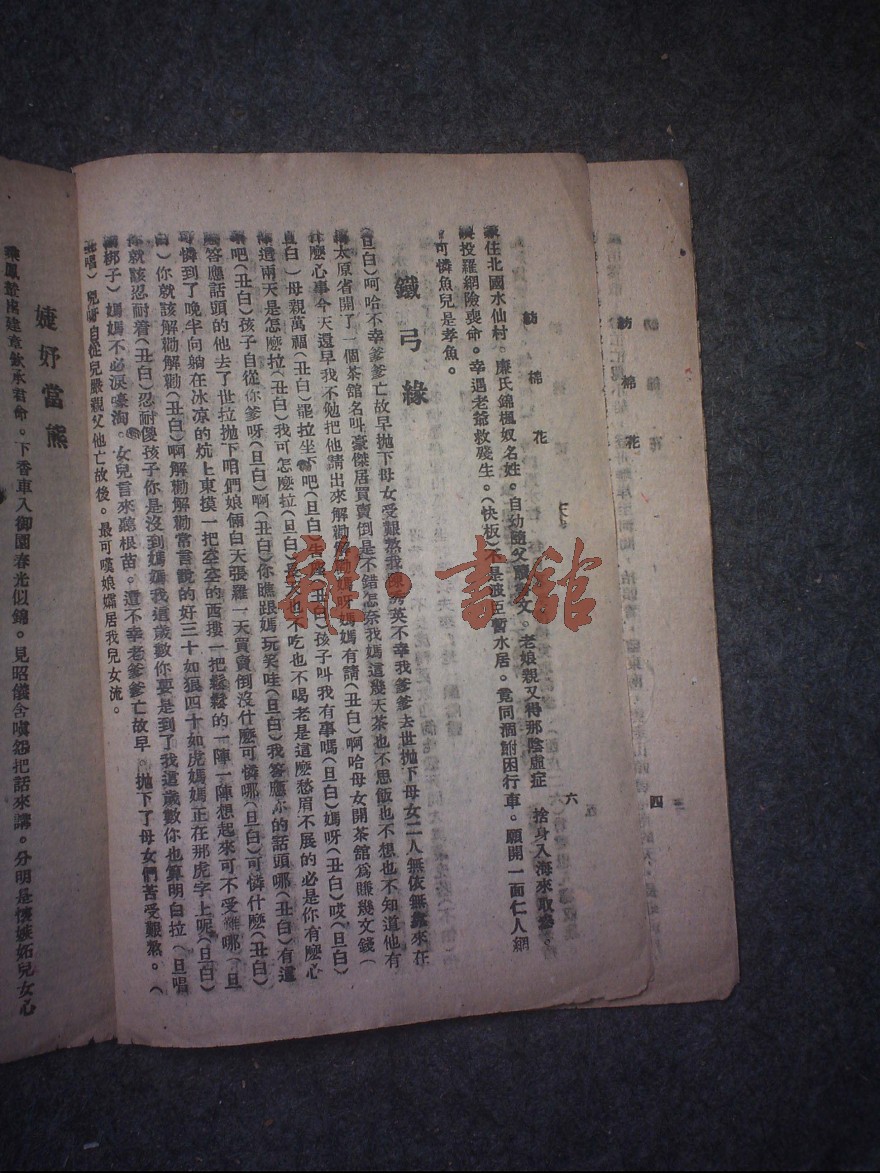 紡棉花
六
家住北國水仙村。廉氏錦楓奴名姓。自幼隨父讀 文。老娘親又得那陰虛症 捨身入海來取參。
誤投羅網險喪命。幸遇老爺救殘生。(快板)不是波臣暫水居。竟同涸鮒困行車。願開一面仁人網
。可憐魚兒是孝魚。
鐵弓緣
(旦白)呵哈不幸爹爹亡故早拋下母女受艱熬我陳秀英不幸我爹爹去世拋下母女二人無依無靠來在
太原省開了一個茶舘名叫豪傑居買賣倒是不錯怎奈我媽這幾天茶也不思飯也不想也不知道他有
什麽心事今天還早我不勉把他請出來解勸解勸媽呀媽媽有請(丑白)啊哈母女開茶舘爲賺幾文錢(
旦白)母親萬福(丑白)罷拉坐下吧(旦白)告座(丑白)孩子叫我有事嗎(旦白)媽呀(丑白)哎(旦白)
你這兩天是怎麽拉(丑白)我可怎麽拉(旦白)是 也不吃也不喝老是這麽愁眉不展的必是你有麽心
事吧(丑白)孩子自從你爹呀(旦白)啊(丑白)你瞧跟媽玩笑哇(旦白)我答應你的話頭哪(丑白)有這
麽答應話頭的他去了世拉拋下咱們娘倆白天張羅一天買賣倒沒什麽可憐哪(旦白)可憐什麽(丑白)
可憐到了晚半向躺在冰凉的炕上東摸一把空空的西摟一把鬆鬆的一陣一陣想起來可不受 哪(旦
白)你就該解勸解勸(丑白)啊解勸解勸常言說的好三十如狼四十如虎媽媽正在那虎字上呢(旦白)
你就該忍耐着(丑白)忍耐傻孩子你是沒到媽媽我這歲數你要是到了我這歲數你也算明白拉(旦唱
梆子)媽媽不必淚嚎淘。女兒言來聽根苗。遭不幸老爹爹亡故早。拋下了母女們苦受艱熬。(
丑唱)兒呀自從兒嚴親父他亡故後。最可嘆娘孀居我兒女流。
婕妤當熊
乘鳳輦離建章欽承君命。下香車入御園春光似錦。見昭儀含嗔怨把話來講。分明是懷嫉妬兒女心
紡棉花
四
雜·書舘